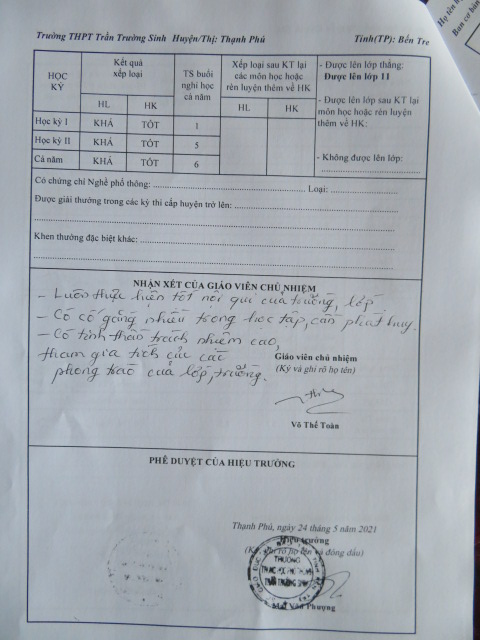 Trường THPT Trần Trường Sinh Huyện/Thị: Thạnh Phú Tỉnh(TP): Bến Tre
HỌC KỲ
Kết quả xếp loại
HL HK
TS buổi nghỉ học cả năm
Xếp loại sau KT lại các môn học hoặc rèn luyện thêm về HK
HL HK
Học kỳ I KHÁ TỐT 1
Học kỳ II KHÁ TỐT 5
Cả năm KHÁ TỐT 6
- Được lên lớp thẳng:
Được lên lớp 11
- Được lên lớp sau KT lại
môn học hoặc rèn luyện
thêm về HK:
- Không được lên lớp:
Có chứng chỉ Nghề phổ thông: Loại:
Được giải thưởng trong các kỳ thi cấp huyện trở lên:
Khen thưởng đặc biệt khác:
NHẬN XÉT CỦA GIÁO VIÊN CHỦ NHIỆM
- Luôn thực hiện tốt nội qui của trường, lớp
- Có cố gắng nhiều trong học tập, cần phát huy.
- Có tinh thần trách nhiệm cao,
tham gia tích cực các
phong trào của lớp, trường.
Giáo viên chủ nhiệm
(Ký và ghi rõ họ tên)
Võ Thế Toàn
PHÊ DUYỆT CỦA HIỆU TRƯỞNG
Thạnh Phú, ngày 24 tháng 5 năm 2021
Hiệu trưởng
(Ký, ghi rõ họ tên và đóng dấu)
TRƯỜNG
TRUNG HỌC PHỔ THÔNG
TRẦN TRƯỜNG SINH
Văn Phượng
Họ tên
Ban cơ bản